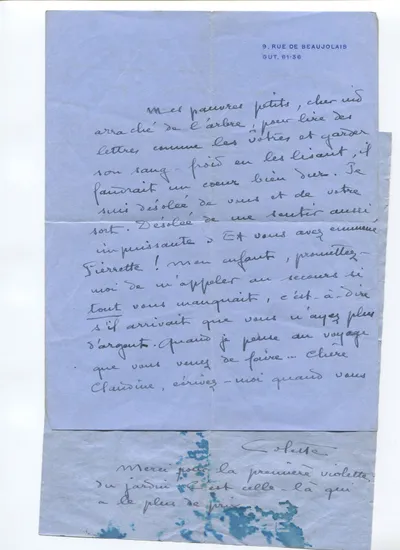 9, RUE DE BEAUJOLAIS
GUT. 91-58
Mes pauvres petits, cher nid
arraché de l'arbre, pour lire des
lettres comme les vôtres et garder
son sang-froid en les lisant, il
faudrait un coeur bien dur. Je
suis désolée de vous et de votre
sort. Désolée de me sentir aussi
impuissante. Et vous avez emmené
Pierrette! Mon enfants, promettez-
moi de m'appeler au secours si
tout vous manquait, c'est-à-dire
s'il arrivait que vous n'ayez plus
d'argent. Quand je pense au voyage
que vous venez de faire... Chère
Claudine, écrivez-moi quand vous
Colette
Merci pour la première violette
du jardin. C'est celle-là qui
a le plus de prix